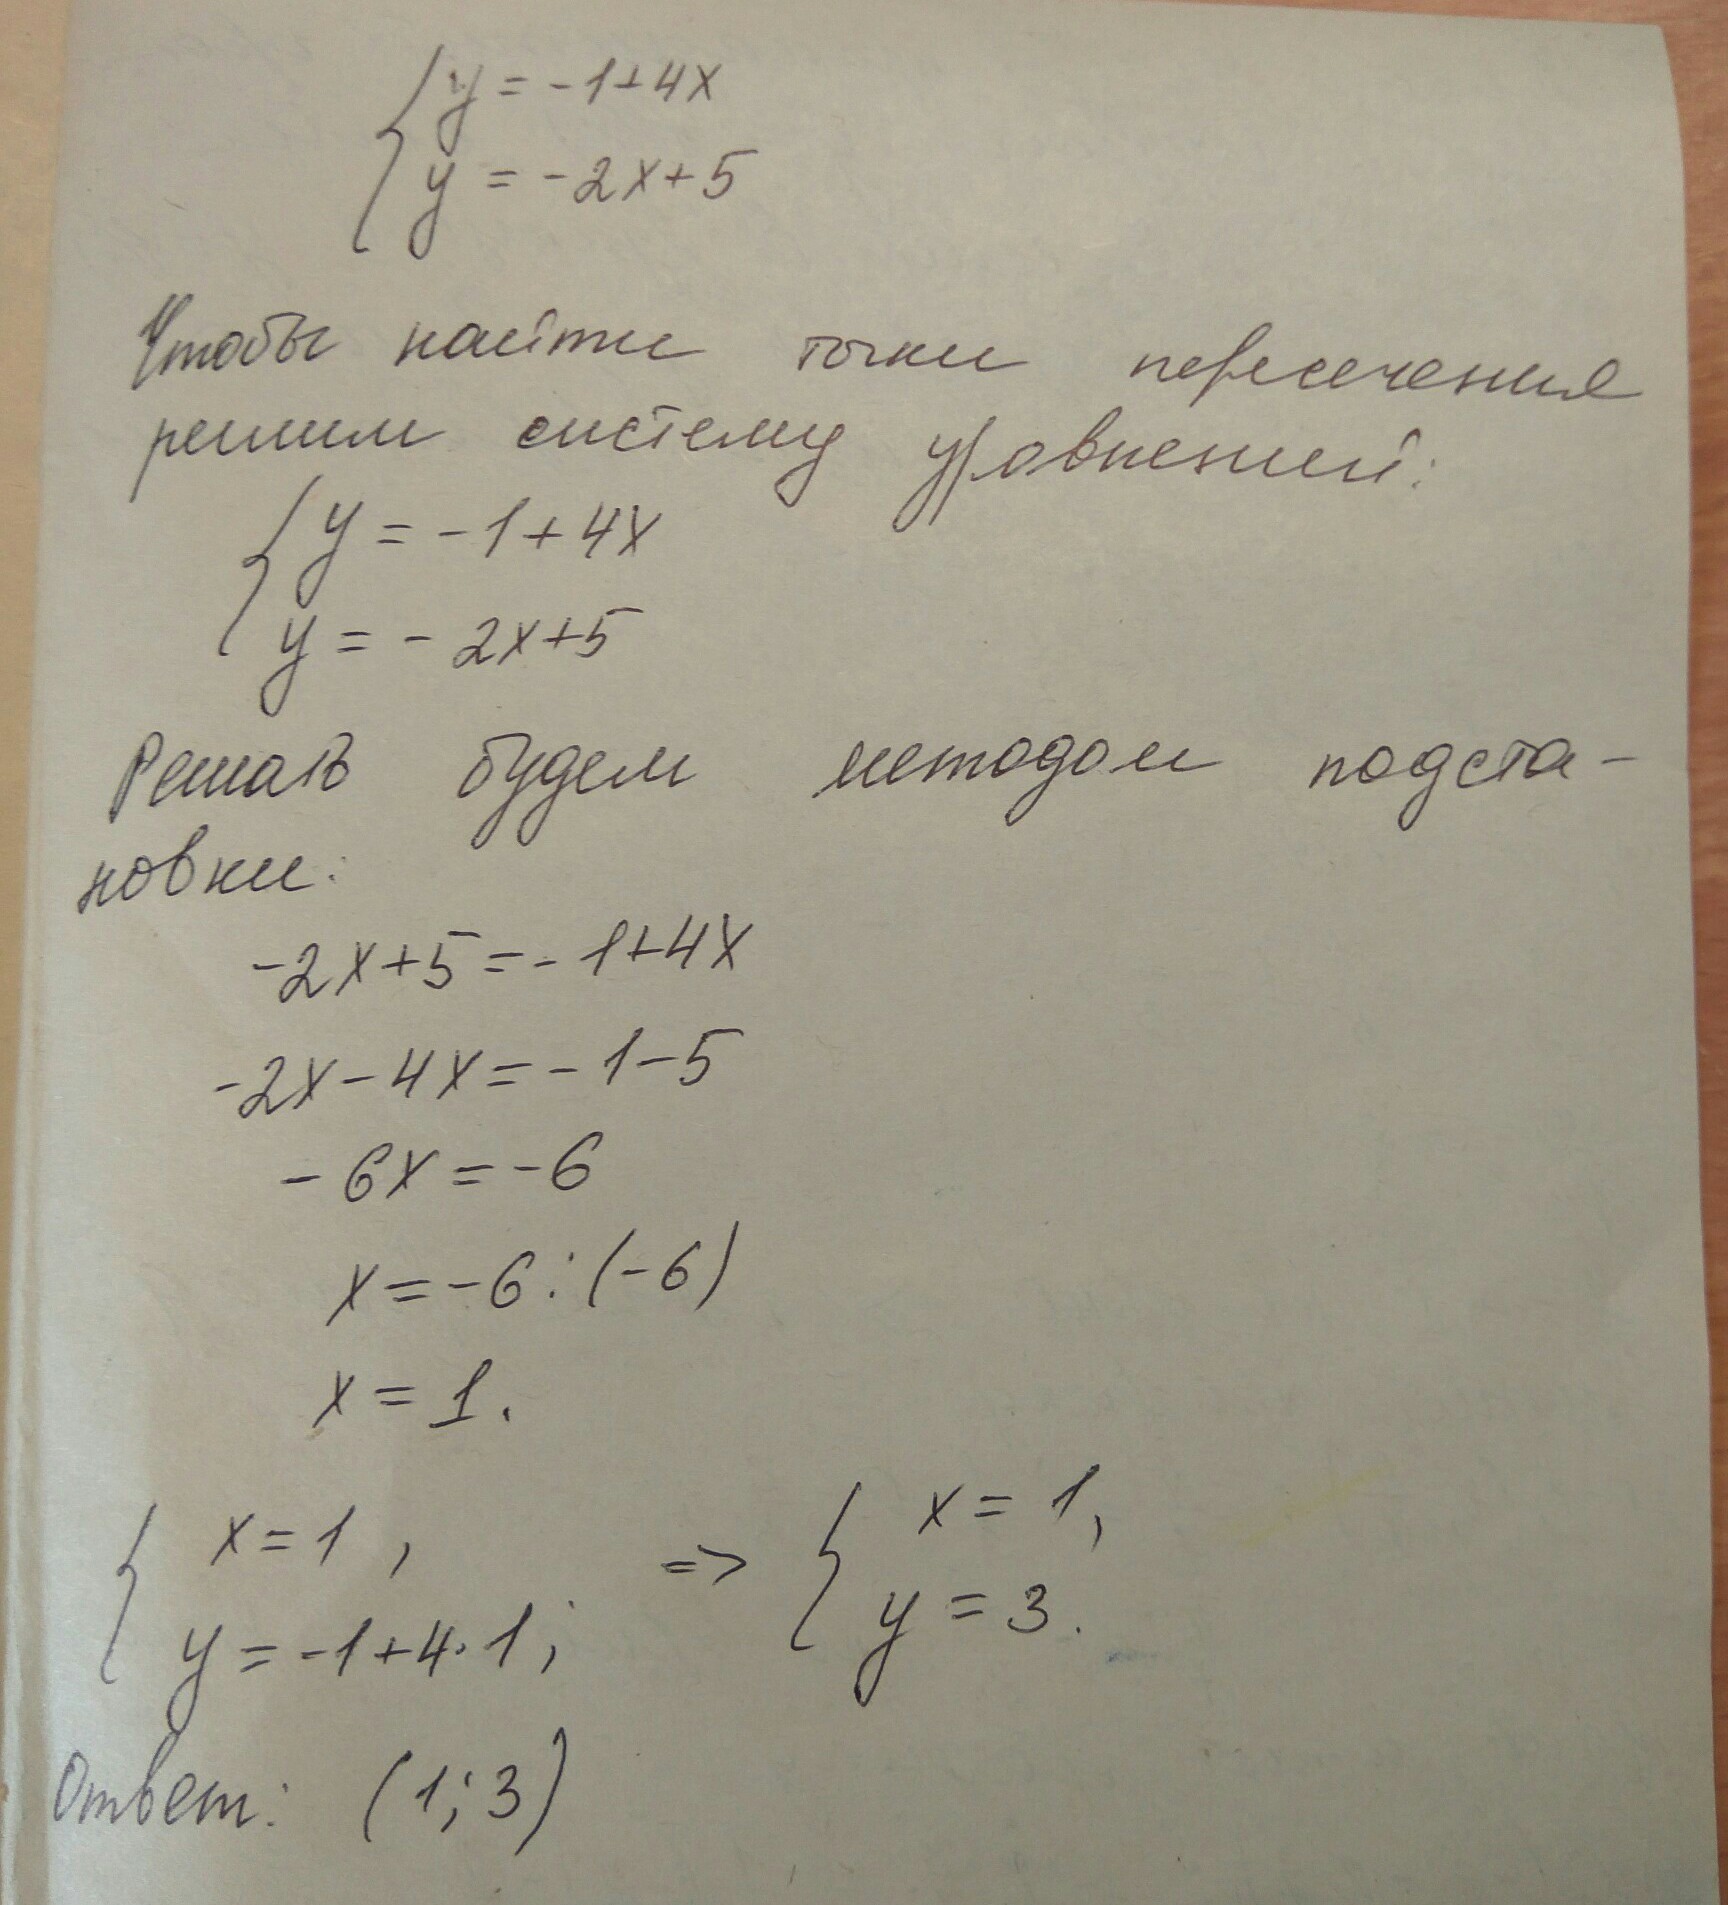 y = -1+4x
y = -2x+5
Чтобы найти точки пересечения
решим систему уравнений:
y = -1+4x
y = - 2x+5
Решать будем методом подста-
новки:
-2x+5=-1+4x
-2x-4x=-1-5
-6x=-6
x=-6:(-6)
x=1.
x=1, => x=1,
y=-1+4·1; y=3.
Ответ: (1;3)